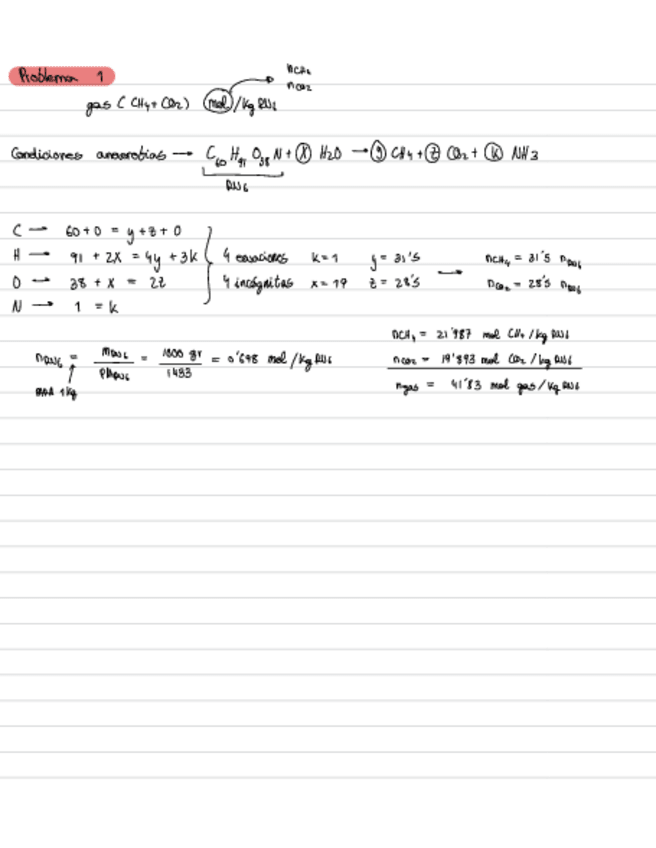 Problema 1
nCH4
nCO2
gas (CH4 + CO2) mol/kg
Condiciones anaerobias → C60 H91 O38 N + X H2O → y CH4 + z CO2 + k NH3
C → 60 + 0 = y + z + 0
H → 91 + 2X = 4y + 3k
O → 38 + x = 2z
N → 1 = k
4 ecuaciones
4 incógnitas
k = 1 y = 31'5
x = 19 z = 28'5
→ nCH4 = 31'5 n
nCO2 = 28'5 n
n = m / PM = 1000 gr / 1433 = 0'698 mol/kg
1kg
nCH4 = 21'987 mol CH4/kg
nCO2 = 19'893 mol CO2/kg
ngas = 41'83 mol gas/kg